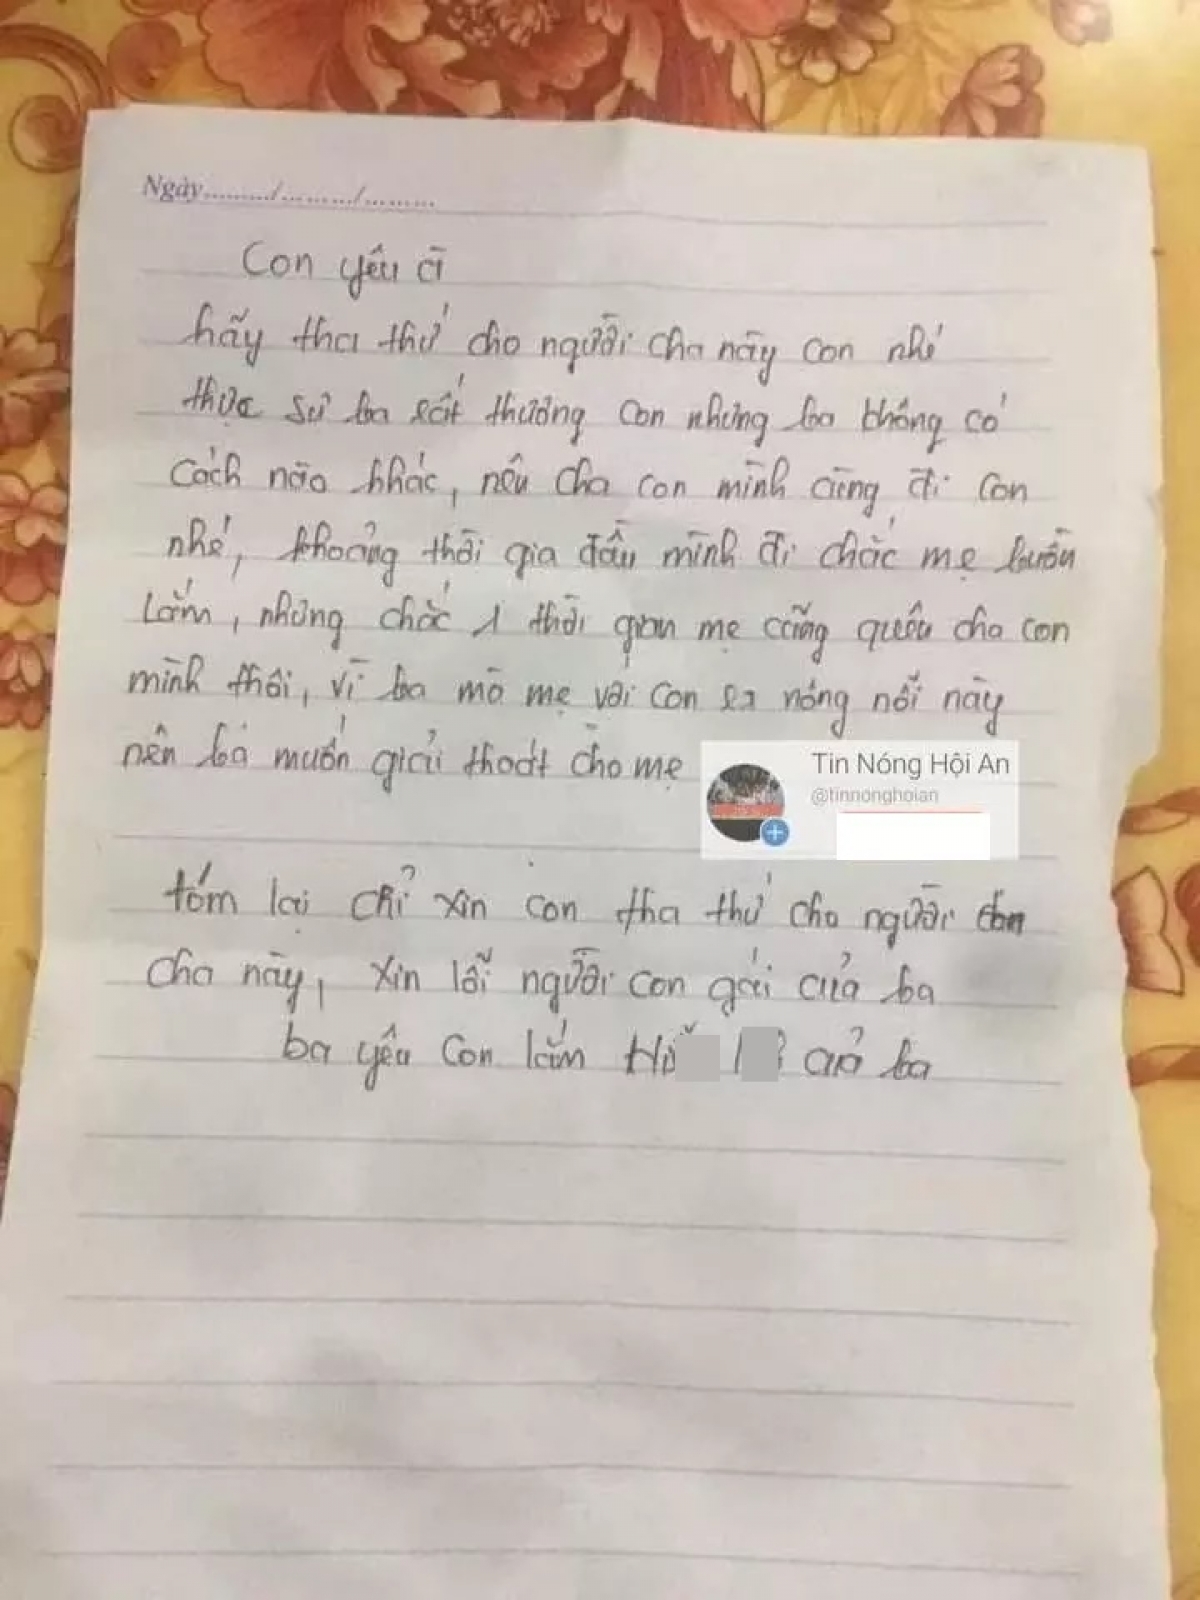 Ngày........./........./.........
Con yêu à
hãy tha thứ cho người cha này con nhé
thực sự ba rất thương con nhưng ba không có
cách nào khác, nên cha con mình cùng đi con
nhé, khoảng thời gia đầu mình đi chắc mẹ buồn
lắm, nhưng chắc 1 thời gian mẹ cũng quên cha con
mình thôi, vì ba mà mẹ với con ra nông nổi này
nên ba muốn giải thoát cho mẹ
Tin Nóng Hội An
@tinnonghoian
tóm lại chỉ xin con tha thứ cho người
cha này, xin lỗi người con gái của ba
ba yêu con lắm của ba